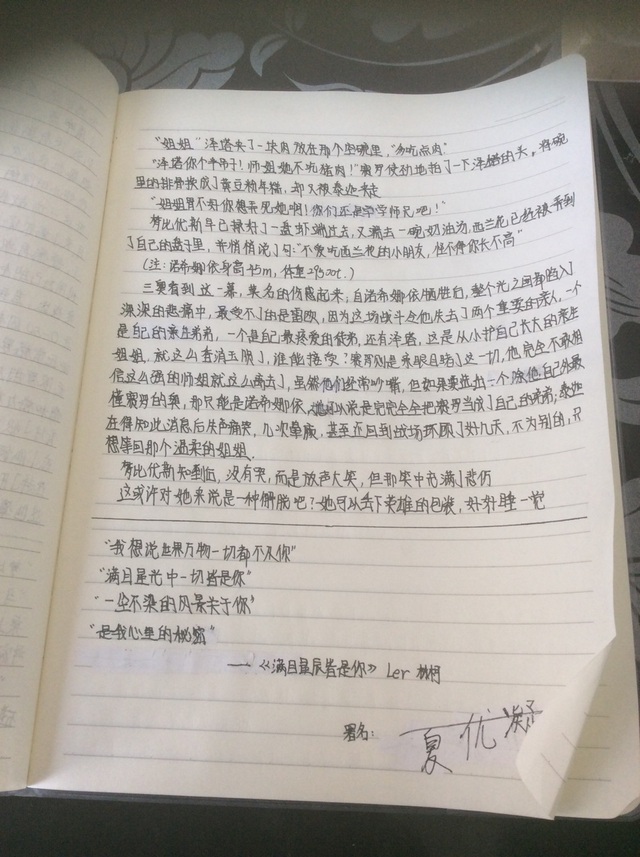 "姐姐"泽塔夹了一块肉放在那个空碗里，"多吃点肉"
"泽塔你个半吊子！师姐她不吃猪肉！"赛罗使劲地拍了一下泽塔的头，将碗
里的排骨换成了黄豆猪年糕，却又被泰迦夹走
"姐姐胃不好你想弄死她啊！你们还是学学师兄吧！"
梦比优斯早已挑好了一盘虾端过去，又端去一碗奶油汤，西兰花已经被弄到
了自己的盘子里，并悄悄说了句："不爱吃西兰花的小朋友，怪不得你长不高"
（注：诺希娜依身高45m，体重29300t.）
三奥看到这一幕，莫名的伤感起来，自诺希娜依牺牲后，整个光之国都陷入
深深的悲痛中，最受不了的是雷欧，因为这场战斗令他失去了两个重要的亲人，一个
是自己的亲生弟弟，一个是自己最疼爱的徒弟，还有泽塔，这是从小护自己长大的亲生
姐姐，就这么香消玉陨了，谁能接受？赛罗则是亲眼目睹了这一切，他完全不敢相
信这么强的师姐就这么离去了，虽然他们经常吵嘴，但如果要选出一个除他自己外最
懂赛罗的奥，那只能是诺希娜依，她可以说是完完全全把赛罗当成了自己的弟弟；泰迦
在得知此消息后失声痛哭，几次晕厥，甚至还回到战场环顾了好几天，不为别的，只
想等回那个温柔的姐姐.
梦比优斯知到后，没有哭，而是放声大笑，但那笑中充满了悲伤
这或许对她来说是一种解脱吧？她可以丢下英雄的包袱，好好睡一觉
"我想说世界万物一切都不及你"
"满目星光中一切皆是你"
"一尘不染的风景关于你"
"是我心里的秘密"
——《满目星辰皆是你》Ler
署名：夏优凝